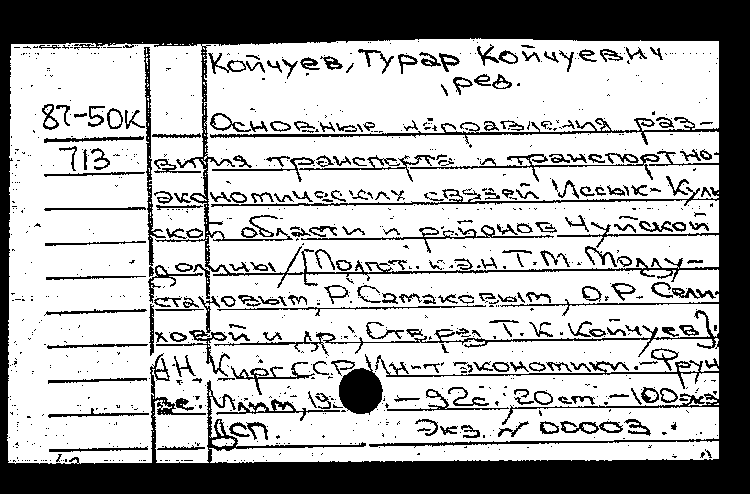 Койчуев, Турар Койчуевич
, ред.
87-50К
Основные направления раз-
713
вития транспорта и транспортно-
экономических связей Иссык-Куль
ской области и районов Чуйской
долины / [Подгот. к.э.н. Т.М. Молду-
становым, Р. Сатаковым, О.Р. Сели-
ховой и др.; Отв. ред. Т.К. Койчуев];
АН КиргССР, Ин-т экономики. - Фрун
зе: Илим, 19 - 92с.; 20 ст. - 100 экз
ДСП. Экз. № 00003.